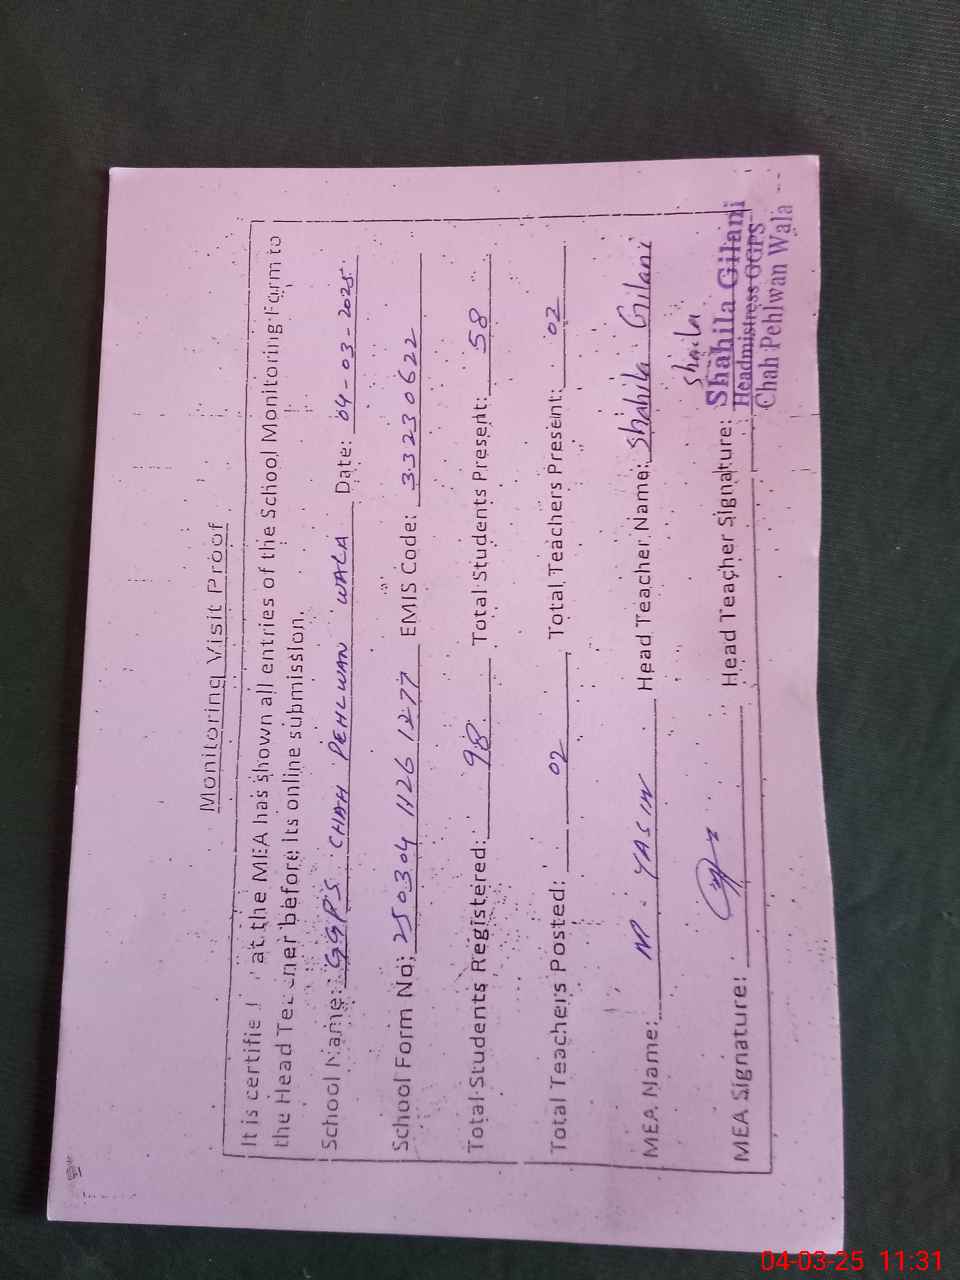 Monitoring Visit Proof
It is certified that the MEA has shown all entries of the School Monitoring Form to
the Head Teacher before its online submission.
School Name: GGPS CHAH PEHLWAN WALA Date: 04-03-2025
School Form No: 250304 1126 1277 EMIS Code: 33230622
Total Students Registered: 98 Total Students Present: 58
Total Teachers Posted: 02 Total Teachers Present: 02
MEA Name: M. YASIN Head Teacher Name: Shahila Gilani
MEA Signature: Head Teacher Signature: Shaila
Shahila Gilani
Headmistress GGPS
Chah Pehlwan Wala
04-03-25 11:31